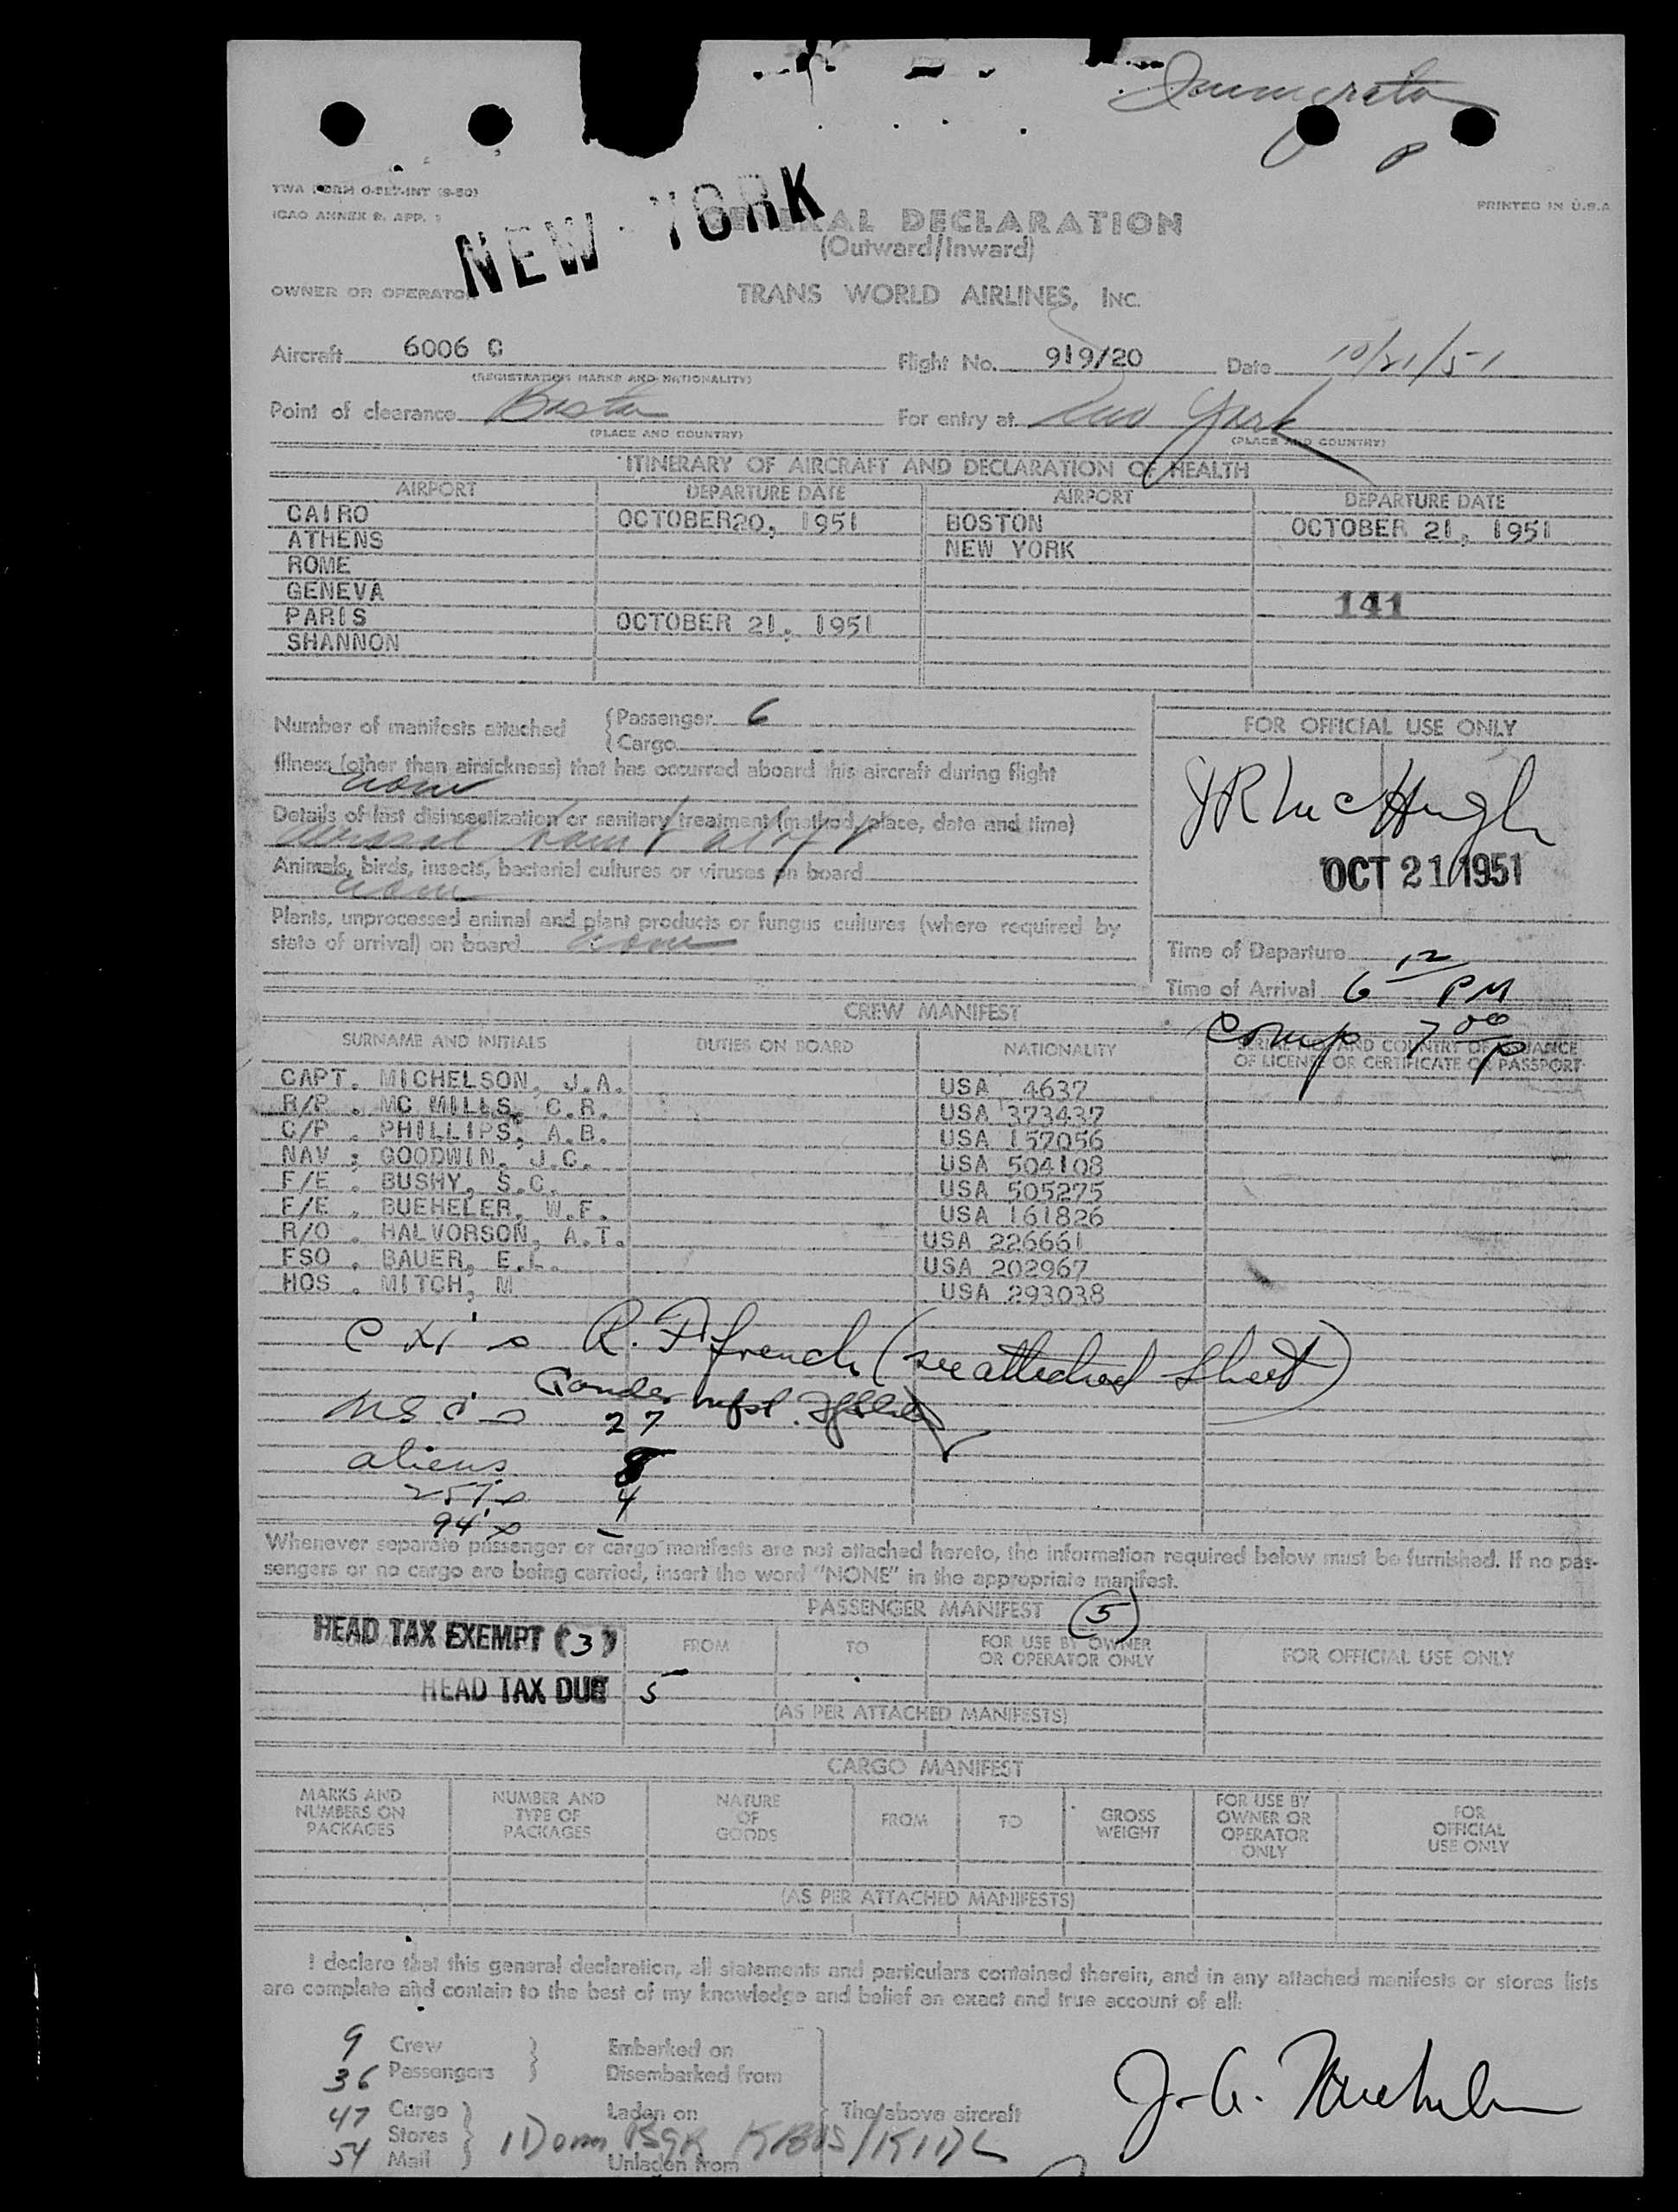 TWA FORM
ICAO ANNEX 9, APP. 1
PRINTED IN U.S.A
NEW YORK
GENERAL DECLARATION
(Outward/Inward)
OWNER OR OPERATOR TRANS WORLD AIRLINES, INC.
Aircraft 6006 C Flight No. 919/20 Date 10/21/51
(REGISTRATION MARKS AND NATIONALITY)
Point of clearance Boston For entry at New York
(PLACE AND COUNTRY) (PLACE AND COUNTRY)
ITINERARY OF AIRCRAFT AND DECLARATION OF HEALTH
AIRPORT DEPARTURE DATE AIRPORT DEPARTURE DATE
CAIRO OCTOBER20, 1951 BOSTON OCTOBER 21, 1951
ATHENS NEW YORK
ROME
GENEVA 141
PARIS OCTOBER 21, 1951
SHANNON
Number of manifests attached { Passenger 6
{ Cargo
FOR OFFICIAL USE ONLY
Illness (other than airsickness) that has occurred aboard this aircraft during flight
none
JR McHugh
Details of last disinsectization or sanitary treatment (method, place, date and time)
aerosol
OCT 21 1951
Animals, birds, insects, bacterial cultures or viruses on board
none
Plants, unprocessed animal and plant products or fungus cultures (where required by
state of arrival) on board none
Time of Departure
Time of Arrival 6 12 PM
Comp 7 00 P
CREW MANIFEST
SURNAME AND INITIALS DUTIES ON BOARD NATIONALITY SERIAL NO. AND COUNTRY OF ISSUANCE
OF LICENSE OR CERTIFICATE OR PASSPORT
CAPT. MICHELSON, J.A. USA 4637
R/P . MC MILLS, C.R. USA 373437
C/P . PHILLIPS, A.B. USA 157056
NAV : GOODWIN, J.C. USA 504108
F/E . BUSHY, S.C. USA 505275
F/E . BUEHELER, W.F. USA 161826
R/O . HALVORSON, A.T. USA 226661
FSO . BAUER, E.L. USA 202967
HOS . MITCH, M USA 293038
R. F. French (see attached sheet)
Gander
27
aliens 8
257's 4
94's –
Whenever separate passenger or cargo manifests are not attached hereto, the information required below must be furnished. If no pas-
sengers or no cargo are being carried, insert the word "NONE" in the appropriate manifest.
PASSENGER MANIFEST (5)
HEAD TAX EXEMPT (3) FROM TO FOR USE BY OWNER
OR OPERATOR ONLY FOR OFFICIAL USE ONLY
HEAD TAX DUE 5
(AS PER ATTACHED MANIFESTS)
CARGO MANIFEST
MARKS AND
NUMBERS ON
PACKAGES
NUMBER AND
TYPE OF
PACKAGES
NATURE
OF
GOODS
FROM
TO
GROSS
WEIGHT
FOR USE BY
OWNER OR
OPERATOR
ONLY
FOR
OFFICIAL
USE ONLY
(AS PER ATTACHED MANIFESTS)
I declare that this general declaration, all statements and particulars contained therein, and in any attached manifests or stores lists
are complete and contain to the best of my knowledge and belief an exact and true account of all:
9 Crew Embarked on
36 Passengers Disembarked from
47 Cargo Laden on The above aircraft
Stores
54 Mail Unladen from